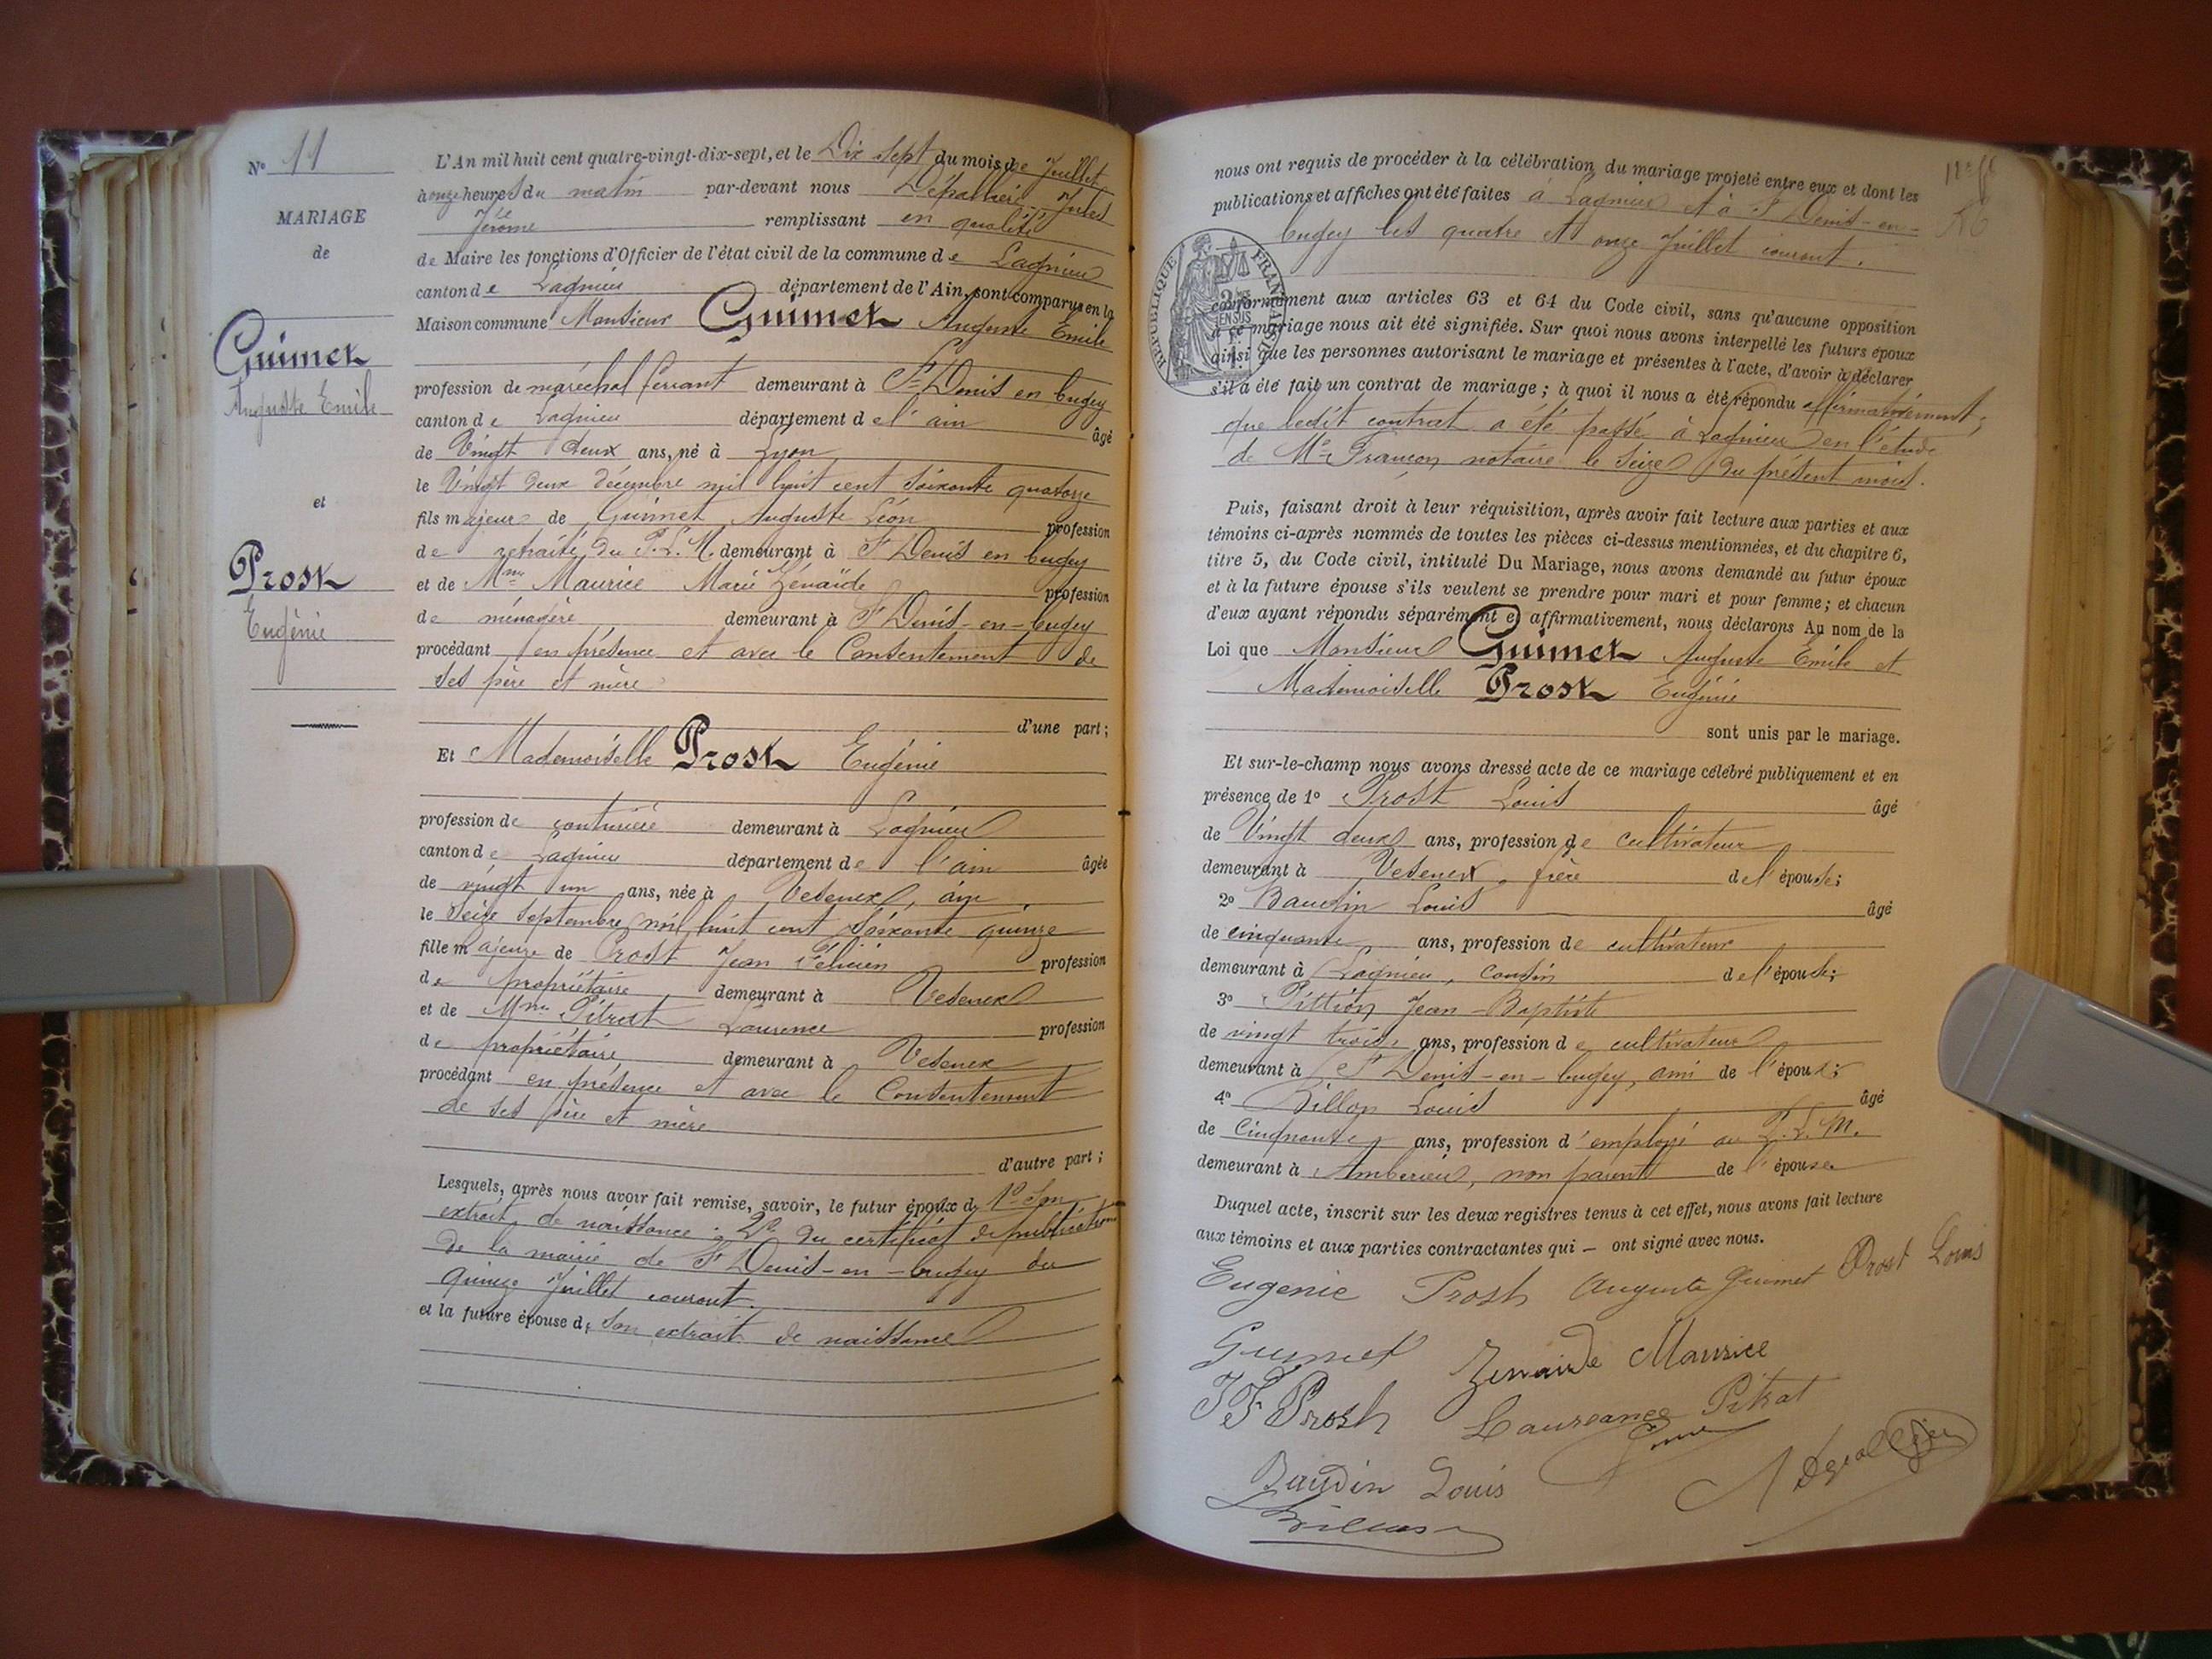 N° 11
MARIAGE
de
Guimet
Auguste Emile
et
Prost
Eugénie
L'An mil huit cent quatre-vingt-dix-sept, et le Dix sept du mois de Juillet
à onze heures du matin par-devant nous Dépallier Jules
Jérôme remplissant en qualité
de Maire les fonctions d'Officier de l'état civil de la commune de Lagnieu
canton de Lagnieu département de l'Ain, sont comparus en la
Maison commune Monsieur Guimet Auguste Emile
profession de maréchal ferrant demeurant à St Denis en bugey
canton de Lagnieu département de l'ain âgé
de Vingt deux ans, né à Lyon
le Vingt deux décembre mil huit cent soixante quatorze
fils majeur de Guimet Auguste Léon profession
de retraité du P.L.M. demeurant à St Denis en bugey
et de Mme Maurice Marie Zénaïde profession
de ménagère demeurant à St Denis-en-bugey
procédant en présence et avec le Consentement de
ses père et mère
d'une part;
Et Mademoiselle Prost Eugénie
profession de couturière demeurant à Lagnieu
canton de Lagnieu département de l'ain âgée
de vingt un ans, née à Vesenex, ain,
le Seize Septembre mil huit cent soixante quinze
fille majeure de Prost Jean Félicien profession
de propriétaire demeurant à Vesenex
et de Mme Pitrat Laurence profession
de propriétaire demeurant à Vesenex
procédant en présence et avec le Consentement
de ses père et mère
d'autre part;
Lesquels, après nous avoir fait remise, savoir, le futur époux de 1° Son
extrait de naissance; 2° du certificat de publications
de la mairie de St Denis-en-bugey du
quinze Juillet courant.
et la future épouse de son extrait de naissance
nous ont requis de procéder à la célébration du mariage projeté entre eux et dont les
publications et affiches ont été faites à Lagnieu et à St Denis-en-
bugey les quatre et onze Juillet courant.
REPUBLIQUE FRANÇAISE
conformément aux articles 63 et 64 du Code civil, sans qu'aucune opposition
à ce mariage nous ait été signifiée. Sur quoi nous avons interpellé les futurs époux
ainsi que les personnes autorisant le mariage et présentes à l'acte, d'avoir à déclarer
s'il a été fait un contrat de mariage; à quoi il nous a été répondu affirmativement;
que ledit contrat a été passé à Lagnieu en l'étude
de Me Françon notaire le seize du présent mois.
Puis, faisant droit à leur réquisition, après avoir fait lecture aux parties et aux
témoins ci-après nommés de toutes les pièces ci-dessus mentionnées, et du chapitre 6,
titre 5, du Code civil, intitulé Du Mariage, nous avons demandé au futur époux
et à la future épouse s'ils veulent se prendre pour mari et pour femme; et chacun
d'eux ayant répondu séparément et affirmativement, nous déclarons Au nom de la
Loi que Monsieur Guimet Auguste Emile et
Mademoiselle Prost Eugénie
sont unis par le mariage.
Et sur-le-champ nous avons dressé acte de ce mariage célébré publiquement et en
présence de 1° Prost Louis âgé
de Vingt deux ans, profession de cultivateur
demeurant à Vesenex, frère de l'épouse;
2° Baudin Louis âgé
de cinquante ans, profession de cultivateur
demeurant à Lagnieu, cousin de l'épouse;
3° Pittion Jean-Baptiste
de vingt trois ans, profession de cultivateur
demeurant à St Denis-en-bugey, ami de l'époux;
4° Billon Louis âgé
de Cinquante ans, profession d'employé au P.L.M.
demeurant à Amberieu, non parent de l'épouse
Duquel acte, inscrit sur les deux registres tenus à cet effet, nous avons fait lecture
aux témoins et aux parties contractantes qui – ont signé avec nous.
Eugenie Prost Auguste Guimet Prost Louis
Guimet Zenaide Maurice
J F Prost Laureance Pitrat
Baudin Louis